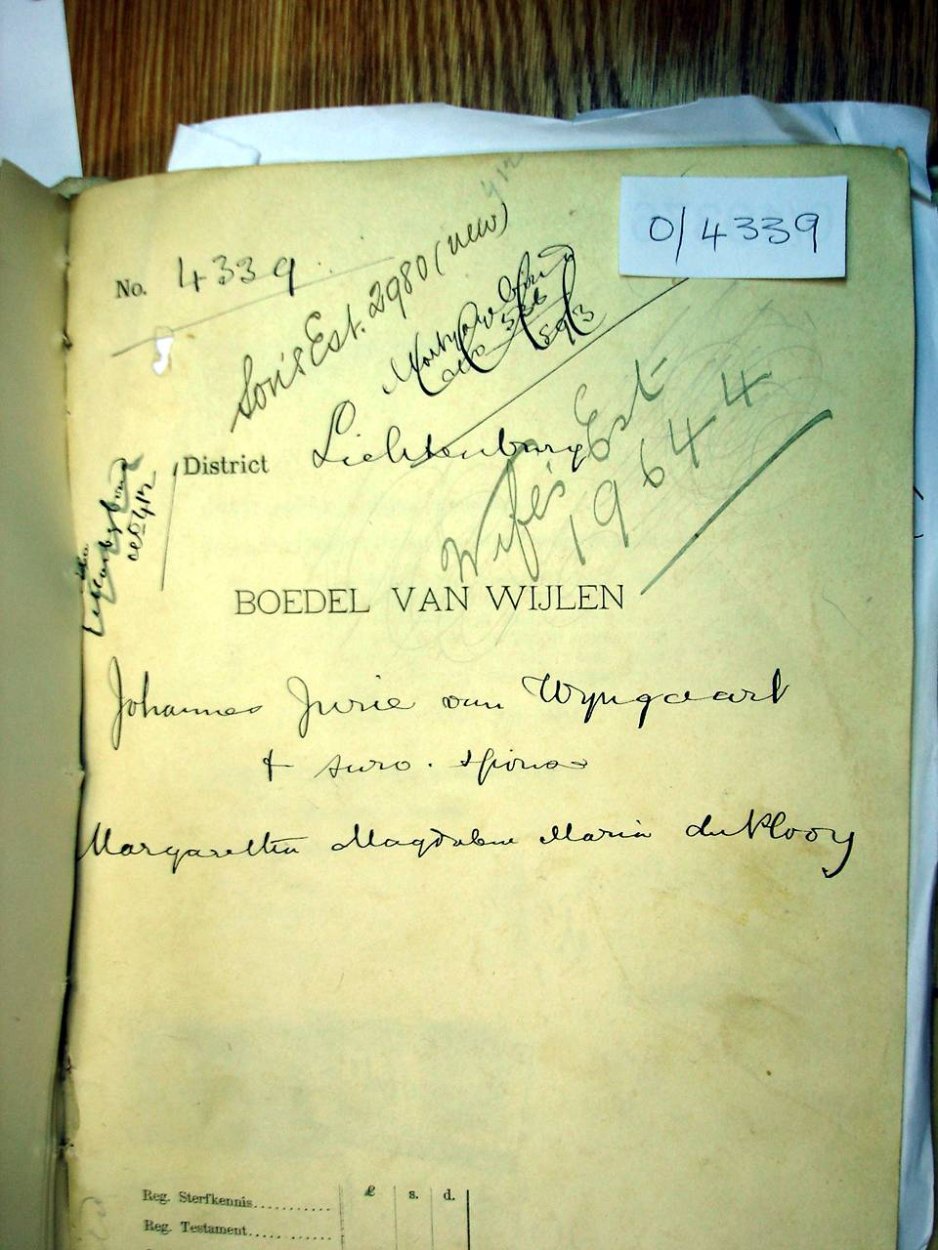 0/4339
No. 4339
Son's Est. 2980 (new)
593
District Lichtenburg
Wife's Est
19644
BOEDEL VAN WIJLEN
Johannes Jurie van Wyngaart
+ surv. spouse
Margaretha Magdalena Maria du Plooy
£ s. d.
Reg. Sterfkennis
Reg. Testament